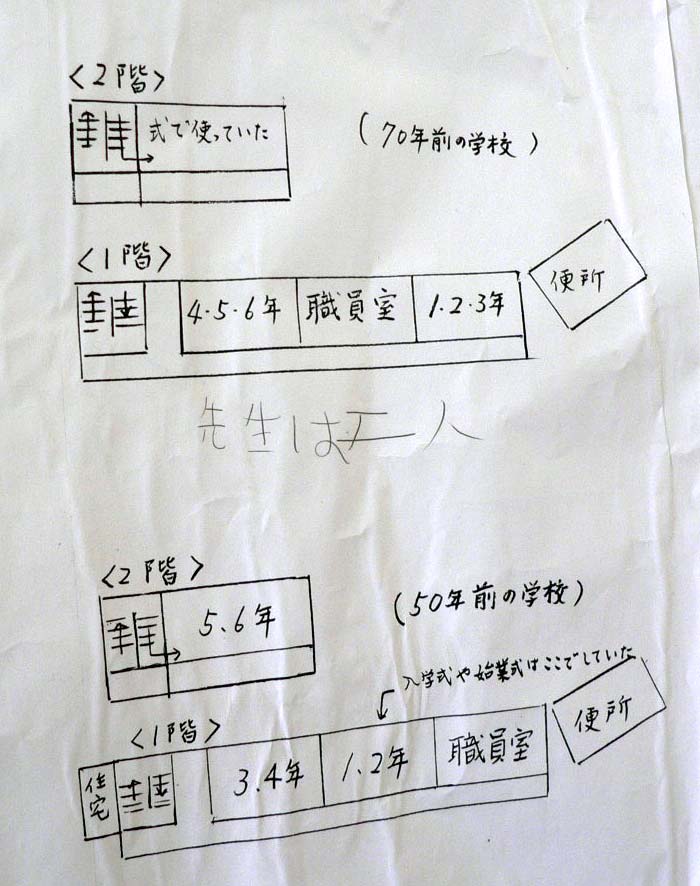 <2階>
式で使っていた
(70年前の学校)
<1階>
4・5・6年 職員室 1・2・3年 便所
先生は 人
<2階>
5、6年
(50年前の学校)
入学式や始業式はここでしていた
<1階>
住宅 3.4年 1.2年 職員室 便所